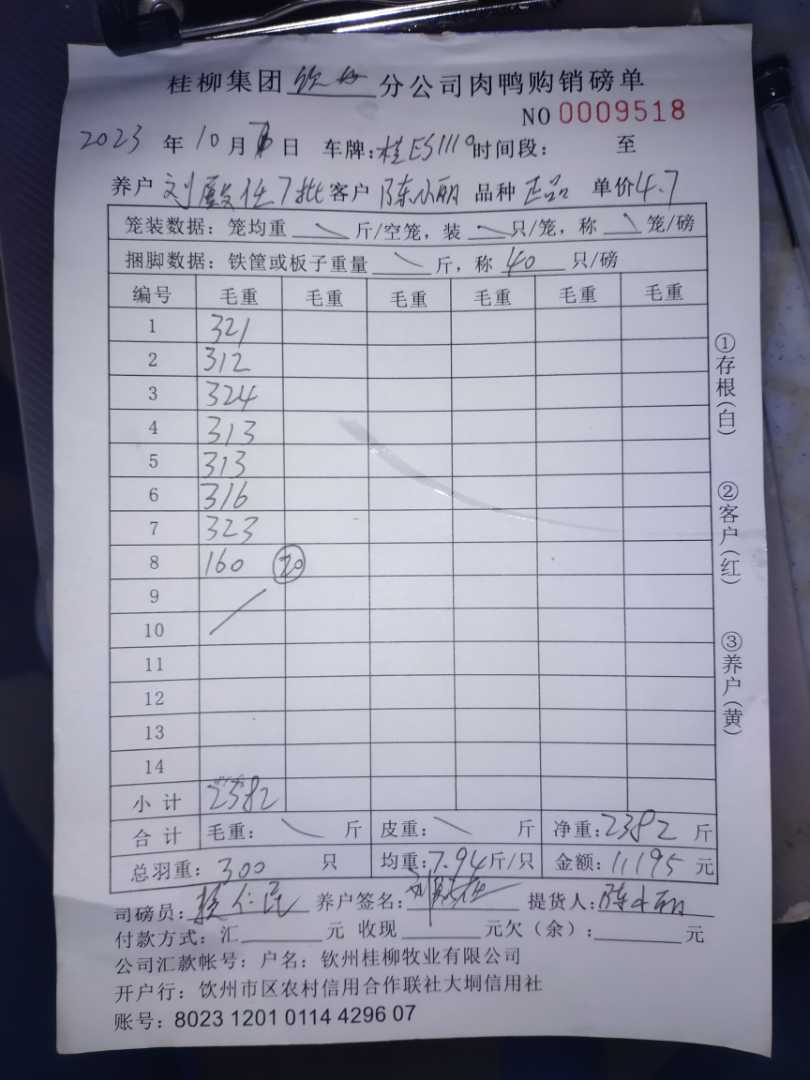 桂柳集团钦州分公司肉鸭购销磅单
NO 0009518
2023年10月 日 车牌:桂ES1119 时间段: 至
养户 刘 任7批 客户 陈小丽 品种 正品 单价4.7
笼装数据:笼均重 斤/空笼,装 只/笼,称 笼/磅
捆脚数据:铁筐或板子重量 斤,称 40 只/磅
编号 毛重 毛重 毛重 毛重 毛重 毛重
1 321
2 312
3 324
4 313
5 313
6 316
7 323
8 160 20
9
10
11
12
13
14
小计 2382
合计 毛重: 斤 皮重: 斤 净重:2382 斤
总羽重:300 只 均重:7.94斤/只 金额:11195 元
司磅员: 仁民 养户签名:刘 任 提货人:陈小丽
付款方式:汇 元 收现 元欠(余): 元
公司汇款帐号:户名:钦州桂柳牧业有限公司
开户行:钦州市区农村信用合作联社大垌信用社
账号:8023 1201 0114 4296 07
①存根(白)
②客户(红)
③养户(黄)